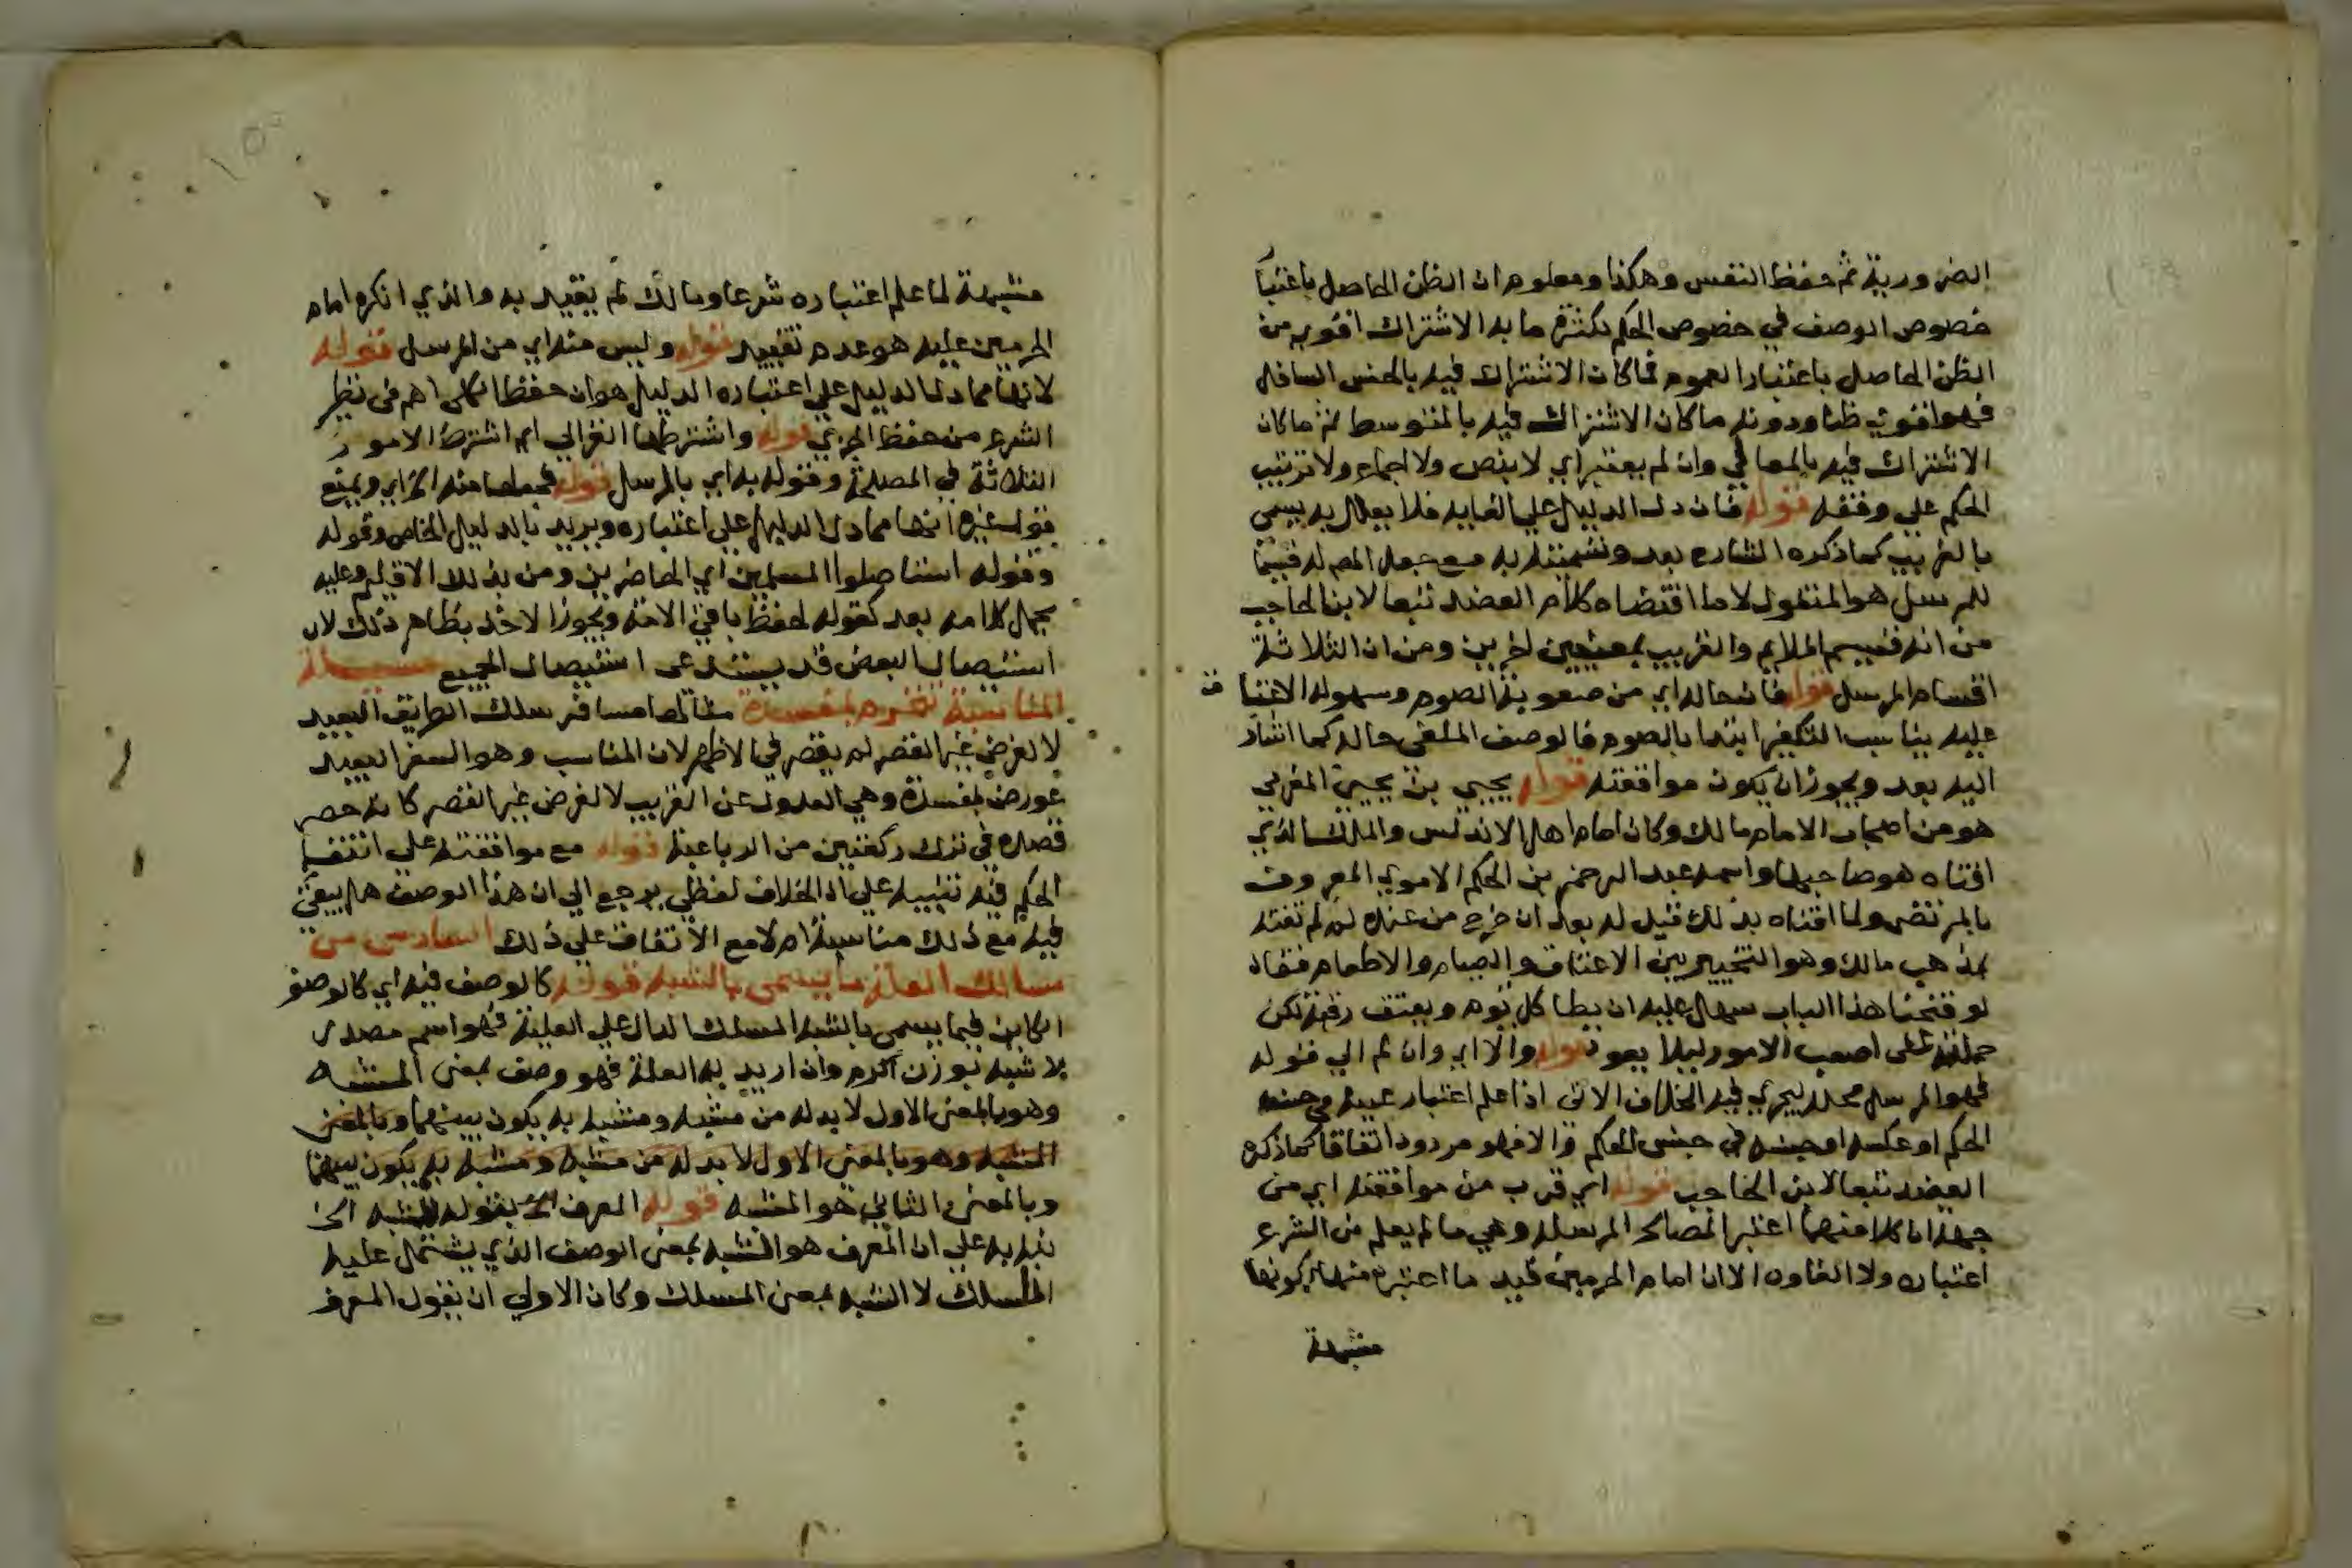 الضرورية ثم حفظ النفس وهكذا ومعلوم ان الظن الحاصل باعتبا
خصوص الوصف في خصوص الحكم لكثرة ما به الاشتراك اقوي من
الظن الحاصل باعتبار العموم فما كان الاشتراك فيه بالجنس السافل
فهو اقوي ظنا ودونه ما كان الاشتراك فيه بالمتوسط ثم ما كان
الاشتراك فيه بالعالي وان لم يعتبر اي لا بنص ولا اجماع ولا ترتيب
الحكم علي وفقه قوله فان دل الدليل علي الغايه فلا يعلل به يسمي
بالغريب كما ذكره الشارح بعد وتسميته به مع جعل المص له قسيما
للمرسل هو المنقول لا ما اقتضاه كلام العضد تبعا لابن الحاجب
من انه قسيم الملايم والغريب بمعنيين اخرين ومن ان الثلاثة
اقسام المرسل قوله فان حاله اي من صعوبة الصوم وسهولة الاعتا ق
عليه يناسب التكفير ابتدا بالصوم فالوصف الملغى حاله كما اشار
اليه بعد ويجوز ان يكون مواقعته قوله يحيي بن يحيي المغربي
هو من اصحاب الامام مالك وكان امام اهل الاندلس والملك الذي
افتاه هو صاحبها واسمه عبد الرحمن بن الحكم الاموي المعروف
بالمرتضى ولما افتاه بذلك قيل له بعد ان خرج من عنده لم لم تفته
بمذهب مالك وهو التخيير بين الاعتاق والصيام والاطعام فقال
لو فتحنا هذا الباب سهل عليه ان يطا كل يوم ويعتق رقبة لكن
حملته على اصعب الامور ليلا يعود قوله والا اي وان لم الي قوله
فهو المرسل محله ليجري فيه الخلاف الاتي اذا علم اعتبار عينه في جنسه
الحكم او عكسه او جنسه في جنس الحكم والا فهو مردود اتفاقا كما ذكره
العضد تبعا لابن الحاجب قوله اي قرب من موافقته اي من
جهة ان كلا منهما اعتبر المصالح المرسله وهي ما لم يعلم من الشرع
اعتباره ولا الغاوه الا ان امام الحرمين قيد ما اعتبره منها بكونها
مشبهة
مشبهة لما علم اعتباره شرعا ومالك لم يقيد به والذي انكره امام
الحرمين عليه هو عدم تقييد قوله وليس منه اي من المرسل قوله
لانها مما دل الدليل علي اعتباره الدليل هو ان حفظ الكلى اهم فى نظر
الشرع من حفظ الجزءي قوله واشترطها الغزالي اي اشترط الامور
الثلاثة في المصلحة وقوله به اي بالمرسل قوله فجعلها منه الخ اي ويمنع
قول غيره انها مما دل الدليل علي اعتباره ويريد بالدليل الخاص وقوله
وقوله استاصلوا المسلمين اي الحاضرين ومن بذلك الاقليم وعليه
يحمل كلامه بعد كقوله لحفظ باقي الامة ويجوز الاخذ بظاهر ذلك لان
استيصال البعض قد يستدعى استيصال الجميع مسيلة
المناسبة تنخرم بمفسدة مثالها مسافر سلك الطريق البعيد
لا لغرض غير القصر لم يقصر في الاظهر لان المناسب وهو السفر البعيد
عورض بمفسدة وهي العدول عن القريب لا لغرض غير القصر كانه حصر
قصده في ترك ركعتين من الرباعية قوله مع موافقته علي انتفا
الحكم فيه تنبيه علي ان الخلاف لفظي يرجع الي ان هذا الوصف هل يبقى
فيه مع ذلك مناسبة ام لا مع الاتفاق علي ذلك السادس من
مسالك العلة ما يسمى بالشبه قوله كالوصف فيه اي كالوصف
الكاين فيما يسمى بالشبه المسلك الدال علي العلية فهو اسم مصدر
لاشبه بوزن اكرم وان اريد به العلة فهو وصف بمعنى المشبه
وهو بالمعنى الاول لا بد له من مشبه ومشبه به يكون بينهما وبالمعنى
المشبه وهو بالمعنى الاول لا بد له من مشبه ومشبه به يكون بينهما
وبالمعنى الثاني هو المشبه قوله المعرف الخ بقوله الشبه الخ
نبه به علي ان المعرف هو الشبه بمعنى الوصف الذي يشتمل عليه
المسلك لا الشبه بمعنى المسلك وكان الاولي ان يقول المعرف